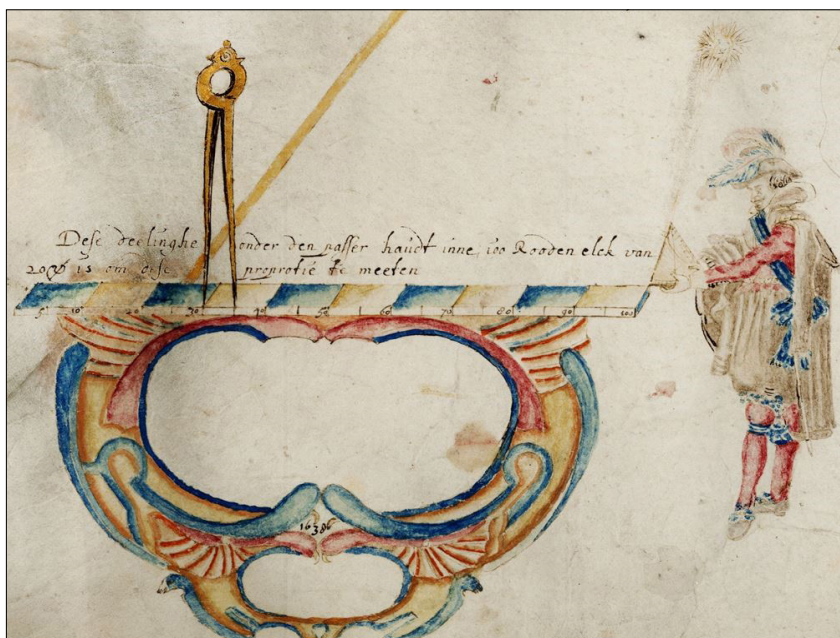 Dese deelinghe onder den passer haudt inne 100 Rooden elck van
is om dese proprotie te meeten
5 10 20 30 40 50 60 70 80 90 100
1638